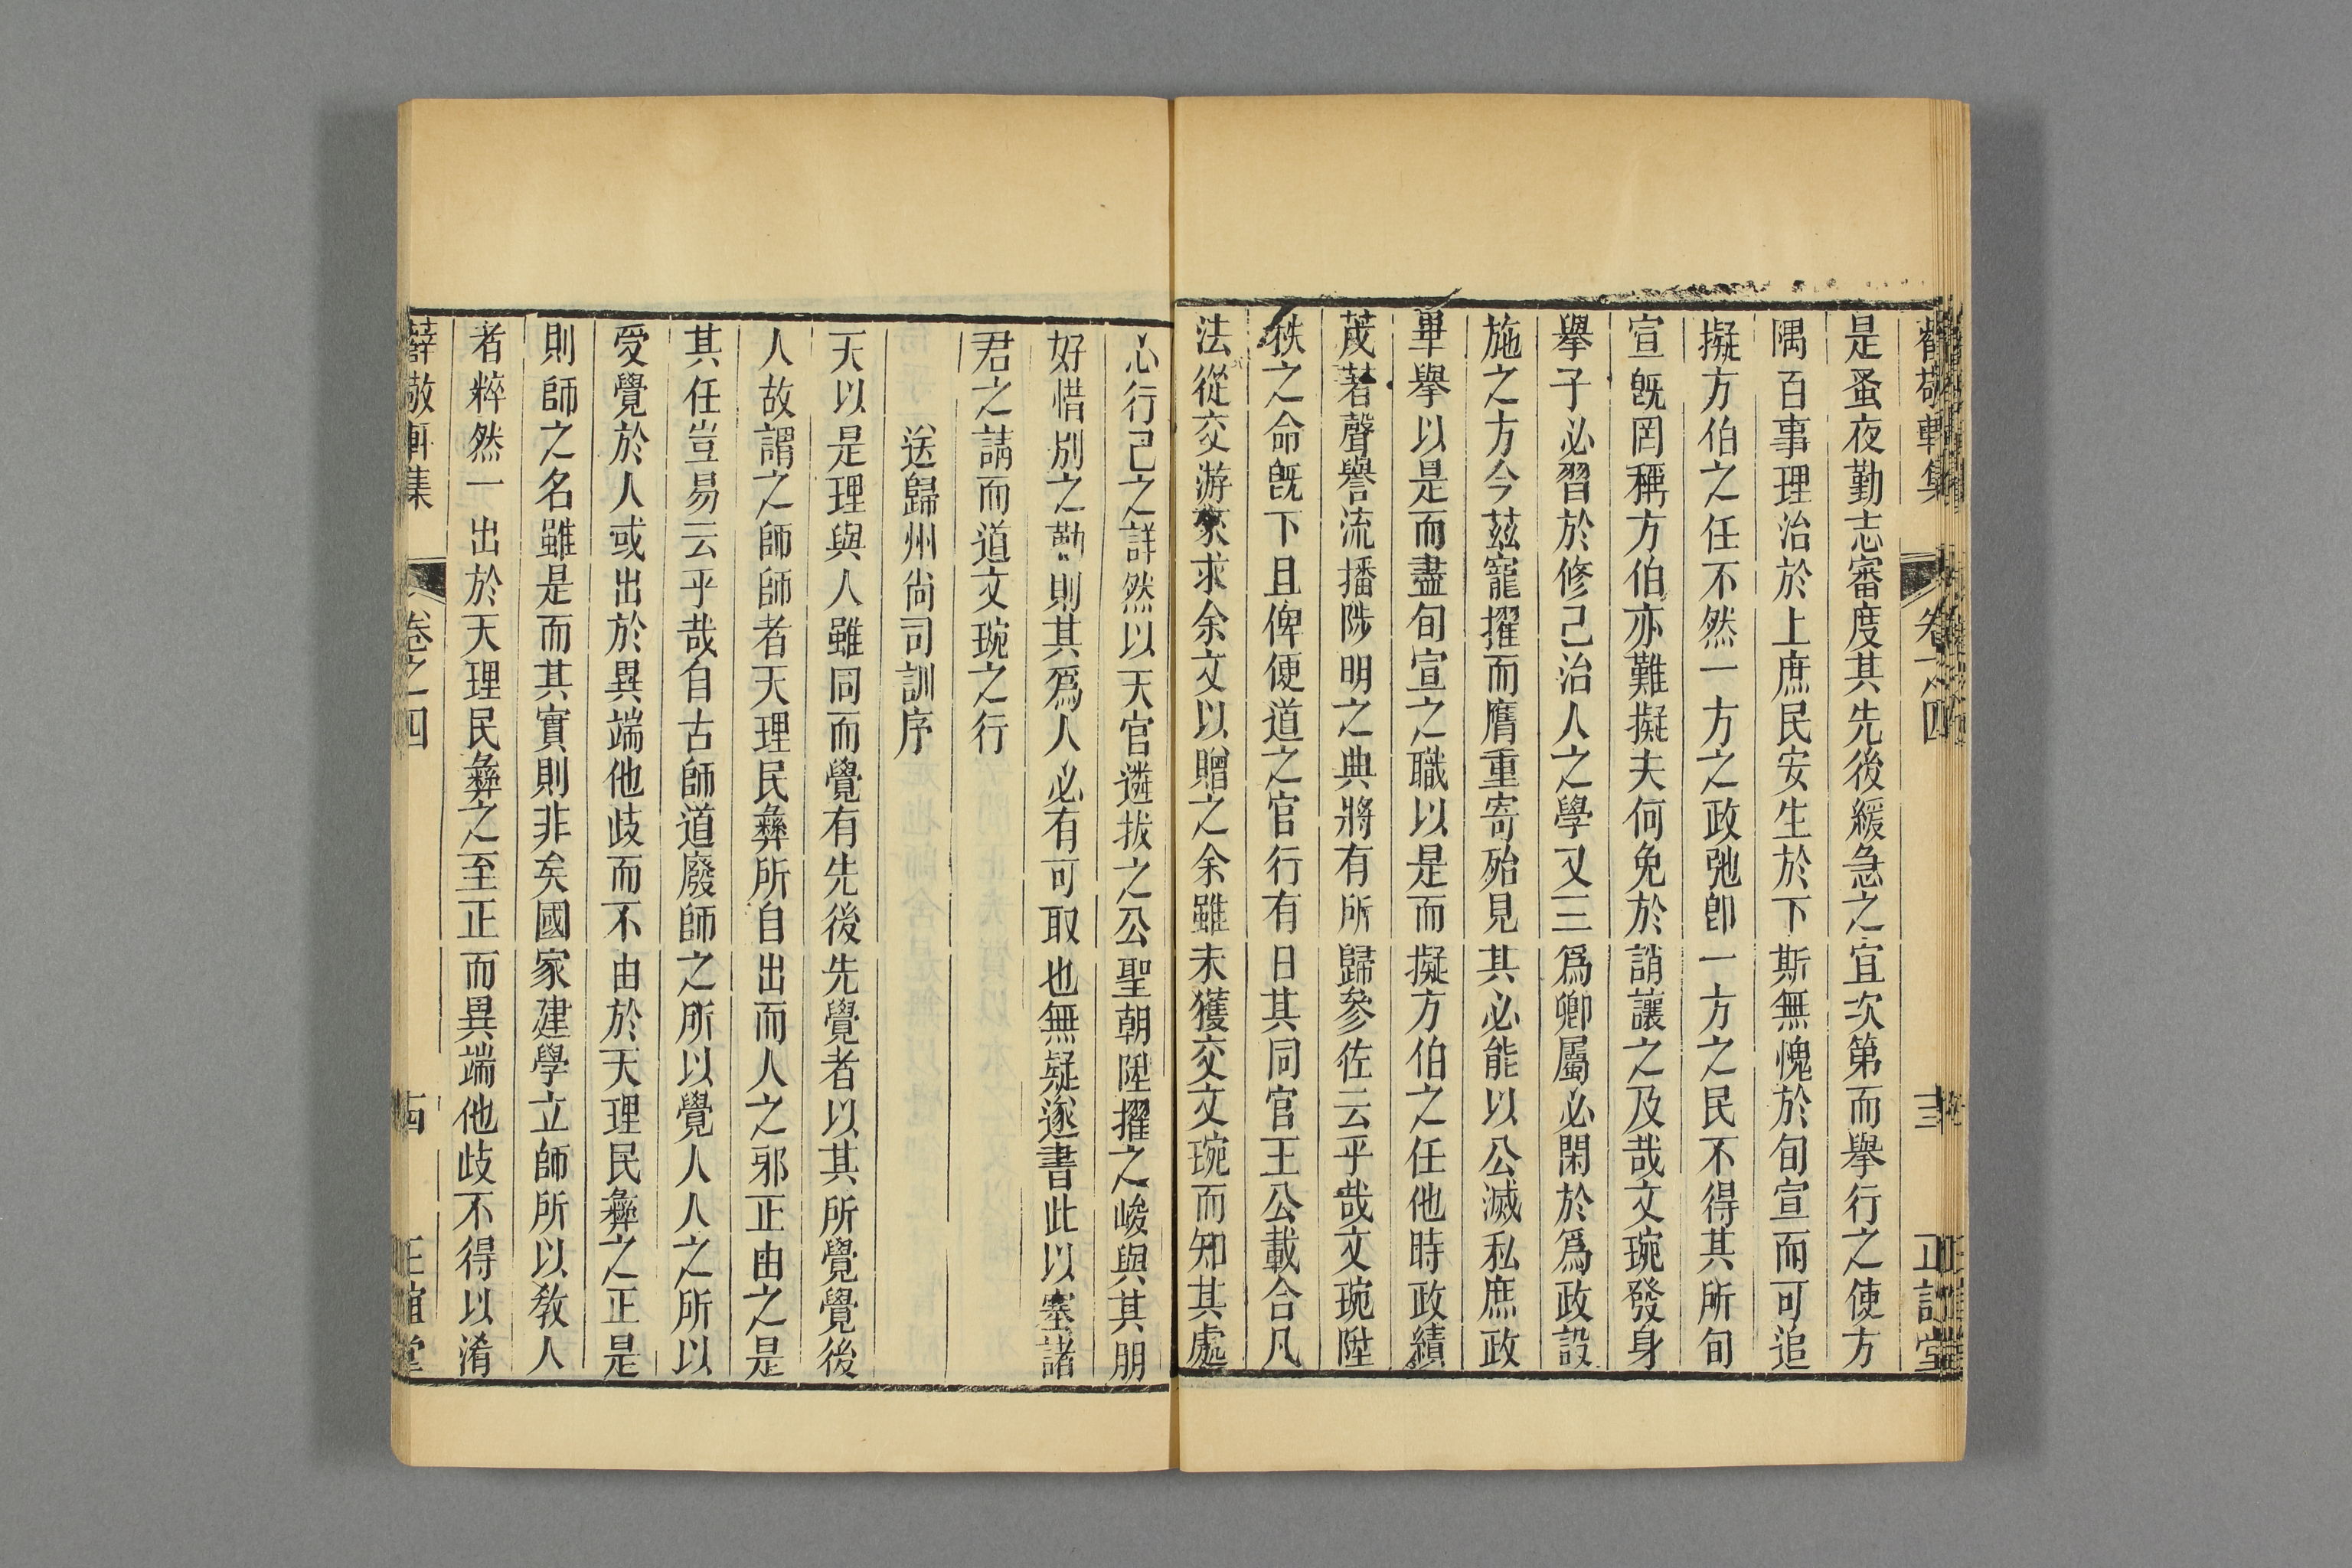 薛敬軒集 卷之四 三 正誼堂
是蚤夜勤志審度其先後緩急之宜次第而舉行之使方
隅百事理治於上庶民安生於下斯無愧於旬宣而可追
擬方伯之任不然一方之政弛卽一方之民不得其所旬
宣旣罔稱方伯亦難擬夫何免於誚讓之及哉文琬發身
舉子必習於修己治人之學又三爲卿屬必閑於爲政設
施之方今茲寵擢而膺重寄殆見其必能以公滅私庶政
畢舉以是而盡旬宣之職以是而擬方伯之任他時政績
茂著聲譽流播陟明之典將有所歸參佐云乎哉文琬陞
秩之命旣下且俾便道之官行有日其同官王公載合凡
法從交游來求余文以贈之余雖未獲交文琬而知其處
心行己之詳然以天官遴拔之公聖朝陞擢之峻與其朋
好惜別之勤則其爲人必有可取也無疑遂書此以塞諸
君之請而道文琬之行
送歸州尚司訓序
天以是理與人雖同而覺有先後先覺者以其所覺覺後
人故謂之師師者天理民彝所自出而人之邪正由之是
其任豈易云乎哉自古師道廢師之所以覺人人之所以
受覺於人或出於異端他歧而不由於天理民彝之正是
則師之名雖是而其實則非矣國家建學立師所以敎人
者粹然一出於天理民彝之至正而異端他歧不得以淆
薛敬軒集 卷之四 古 正誼堂